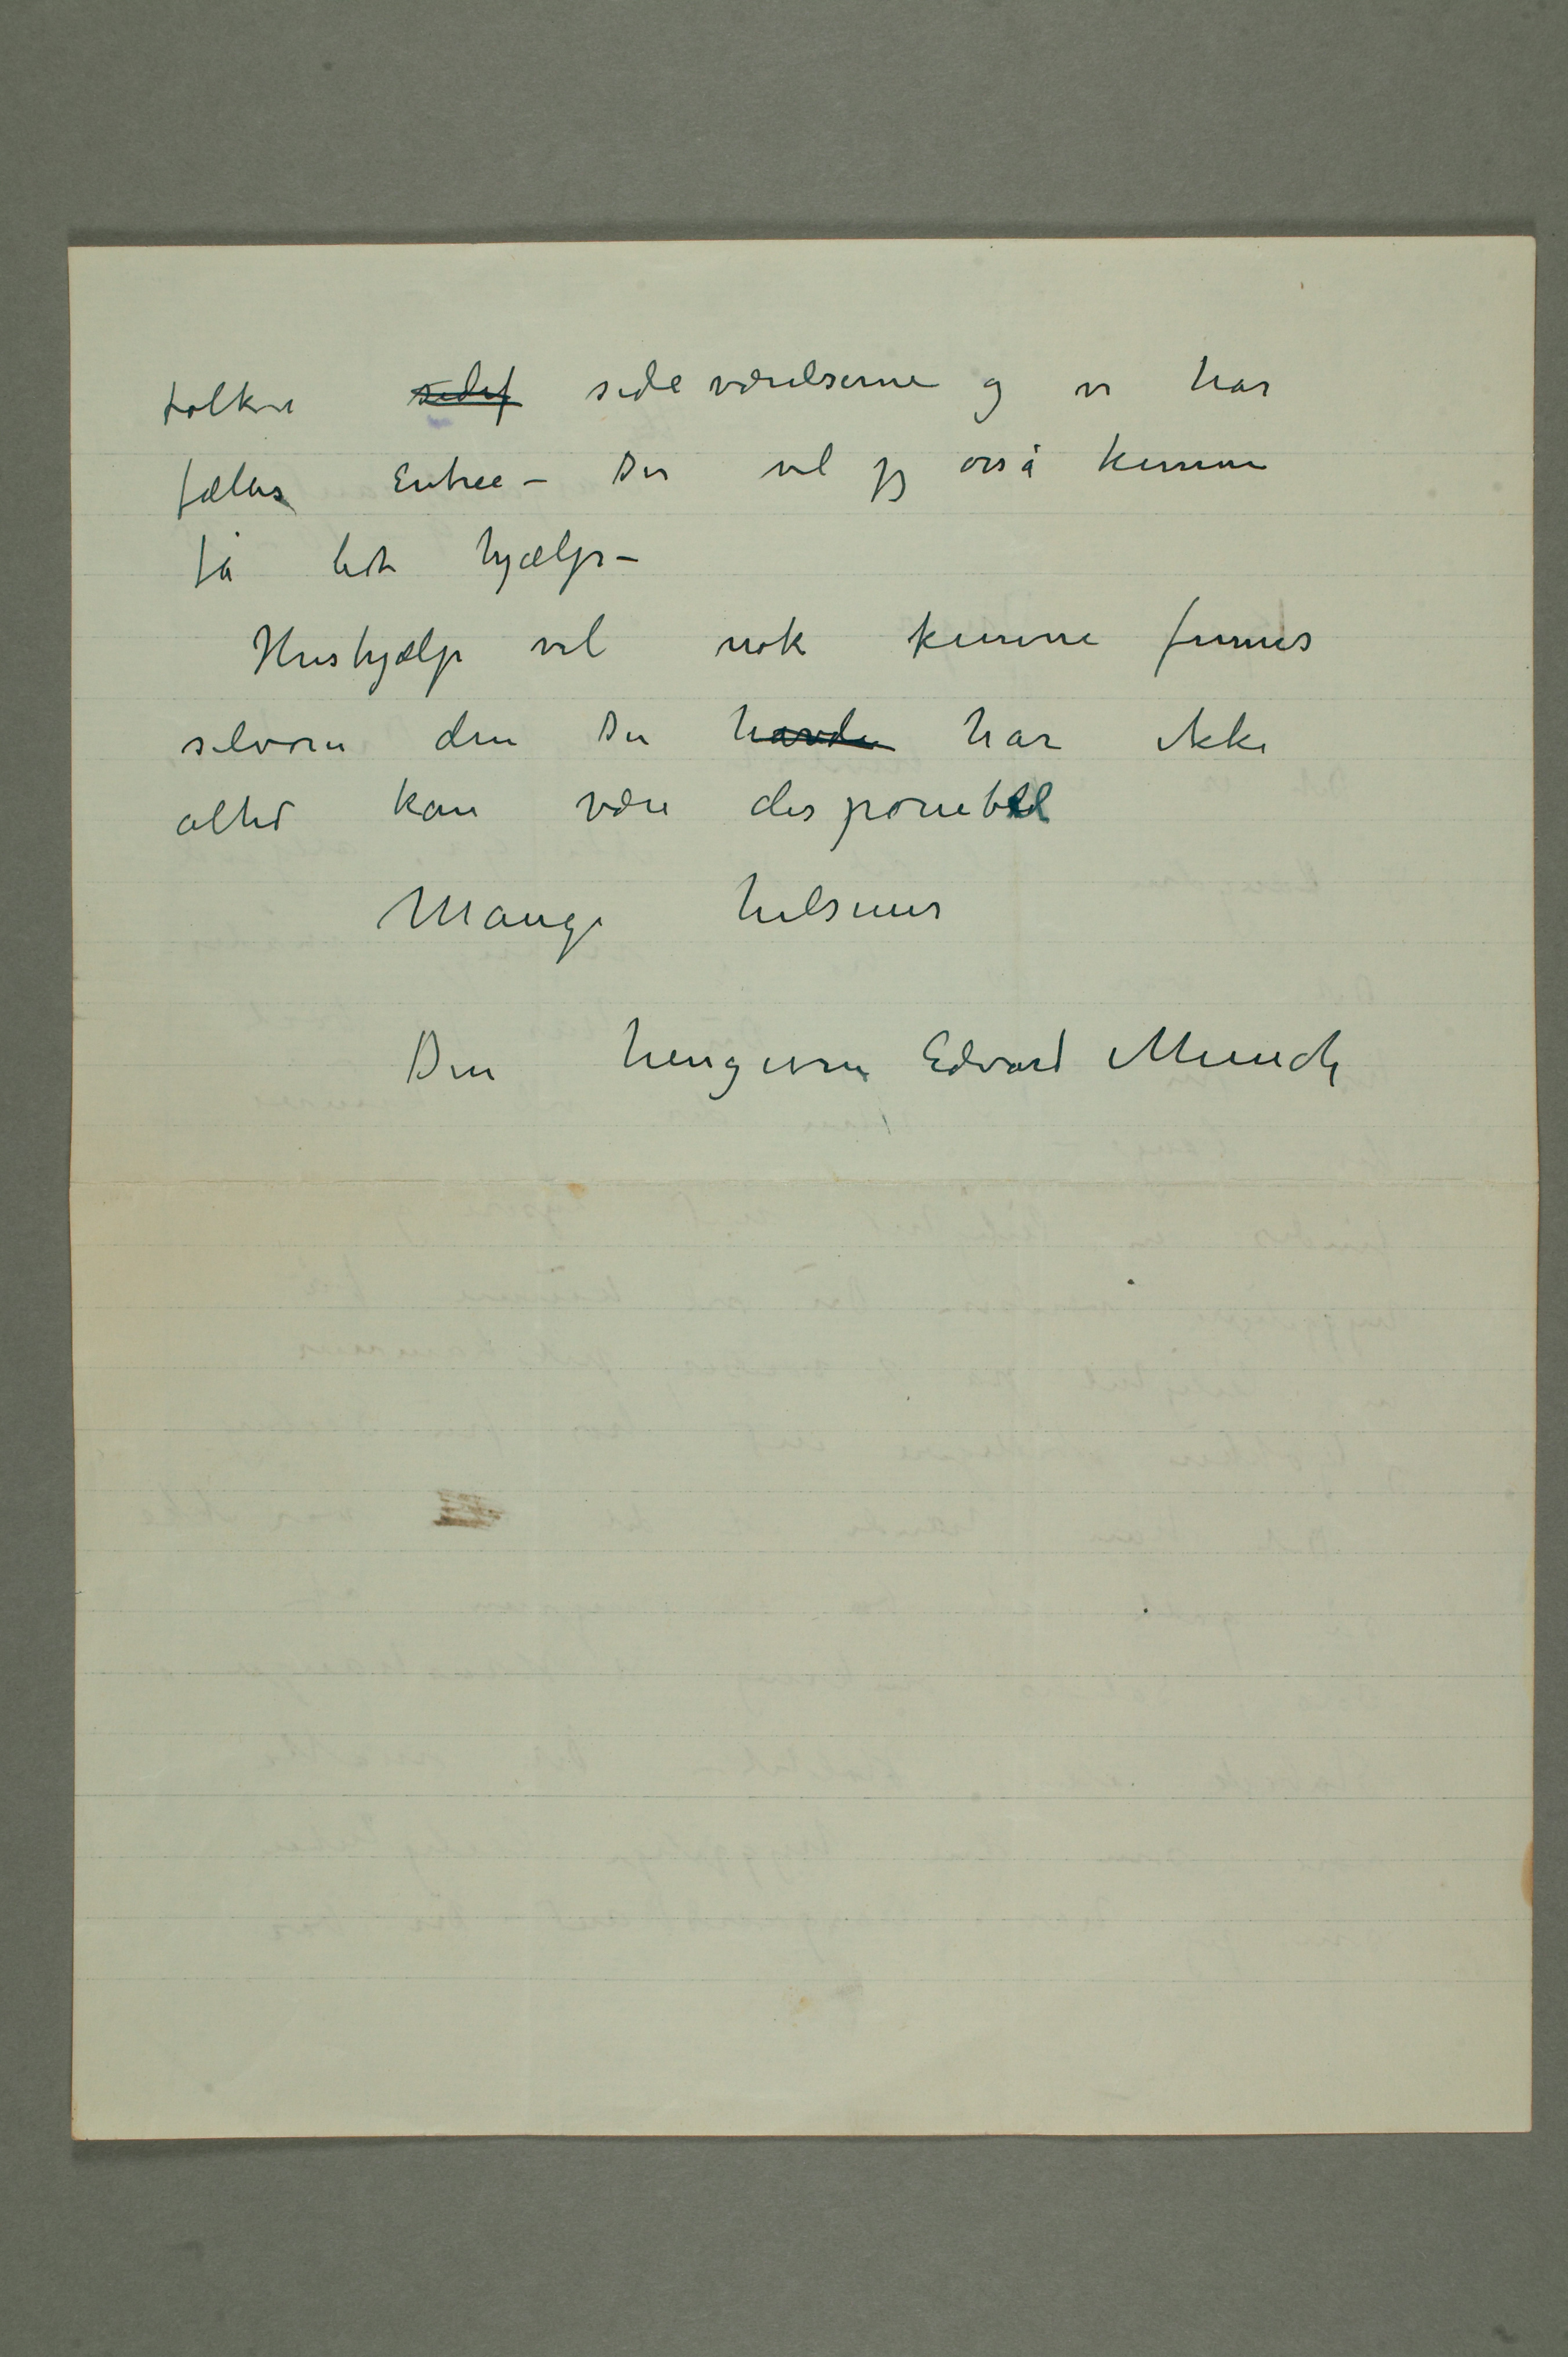 folkene sidef sideværelserne og vi har
fælles Entree – Der vil jeg også kunne
få lidt hjælp –
Hushjælp vil nok kunne finnes
selvom den Du havde har ikke
altid kan være disponebel
Mange hilsener
Din hengivne Edvard Munch